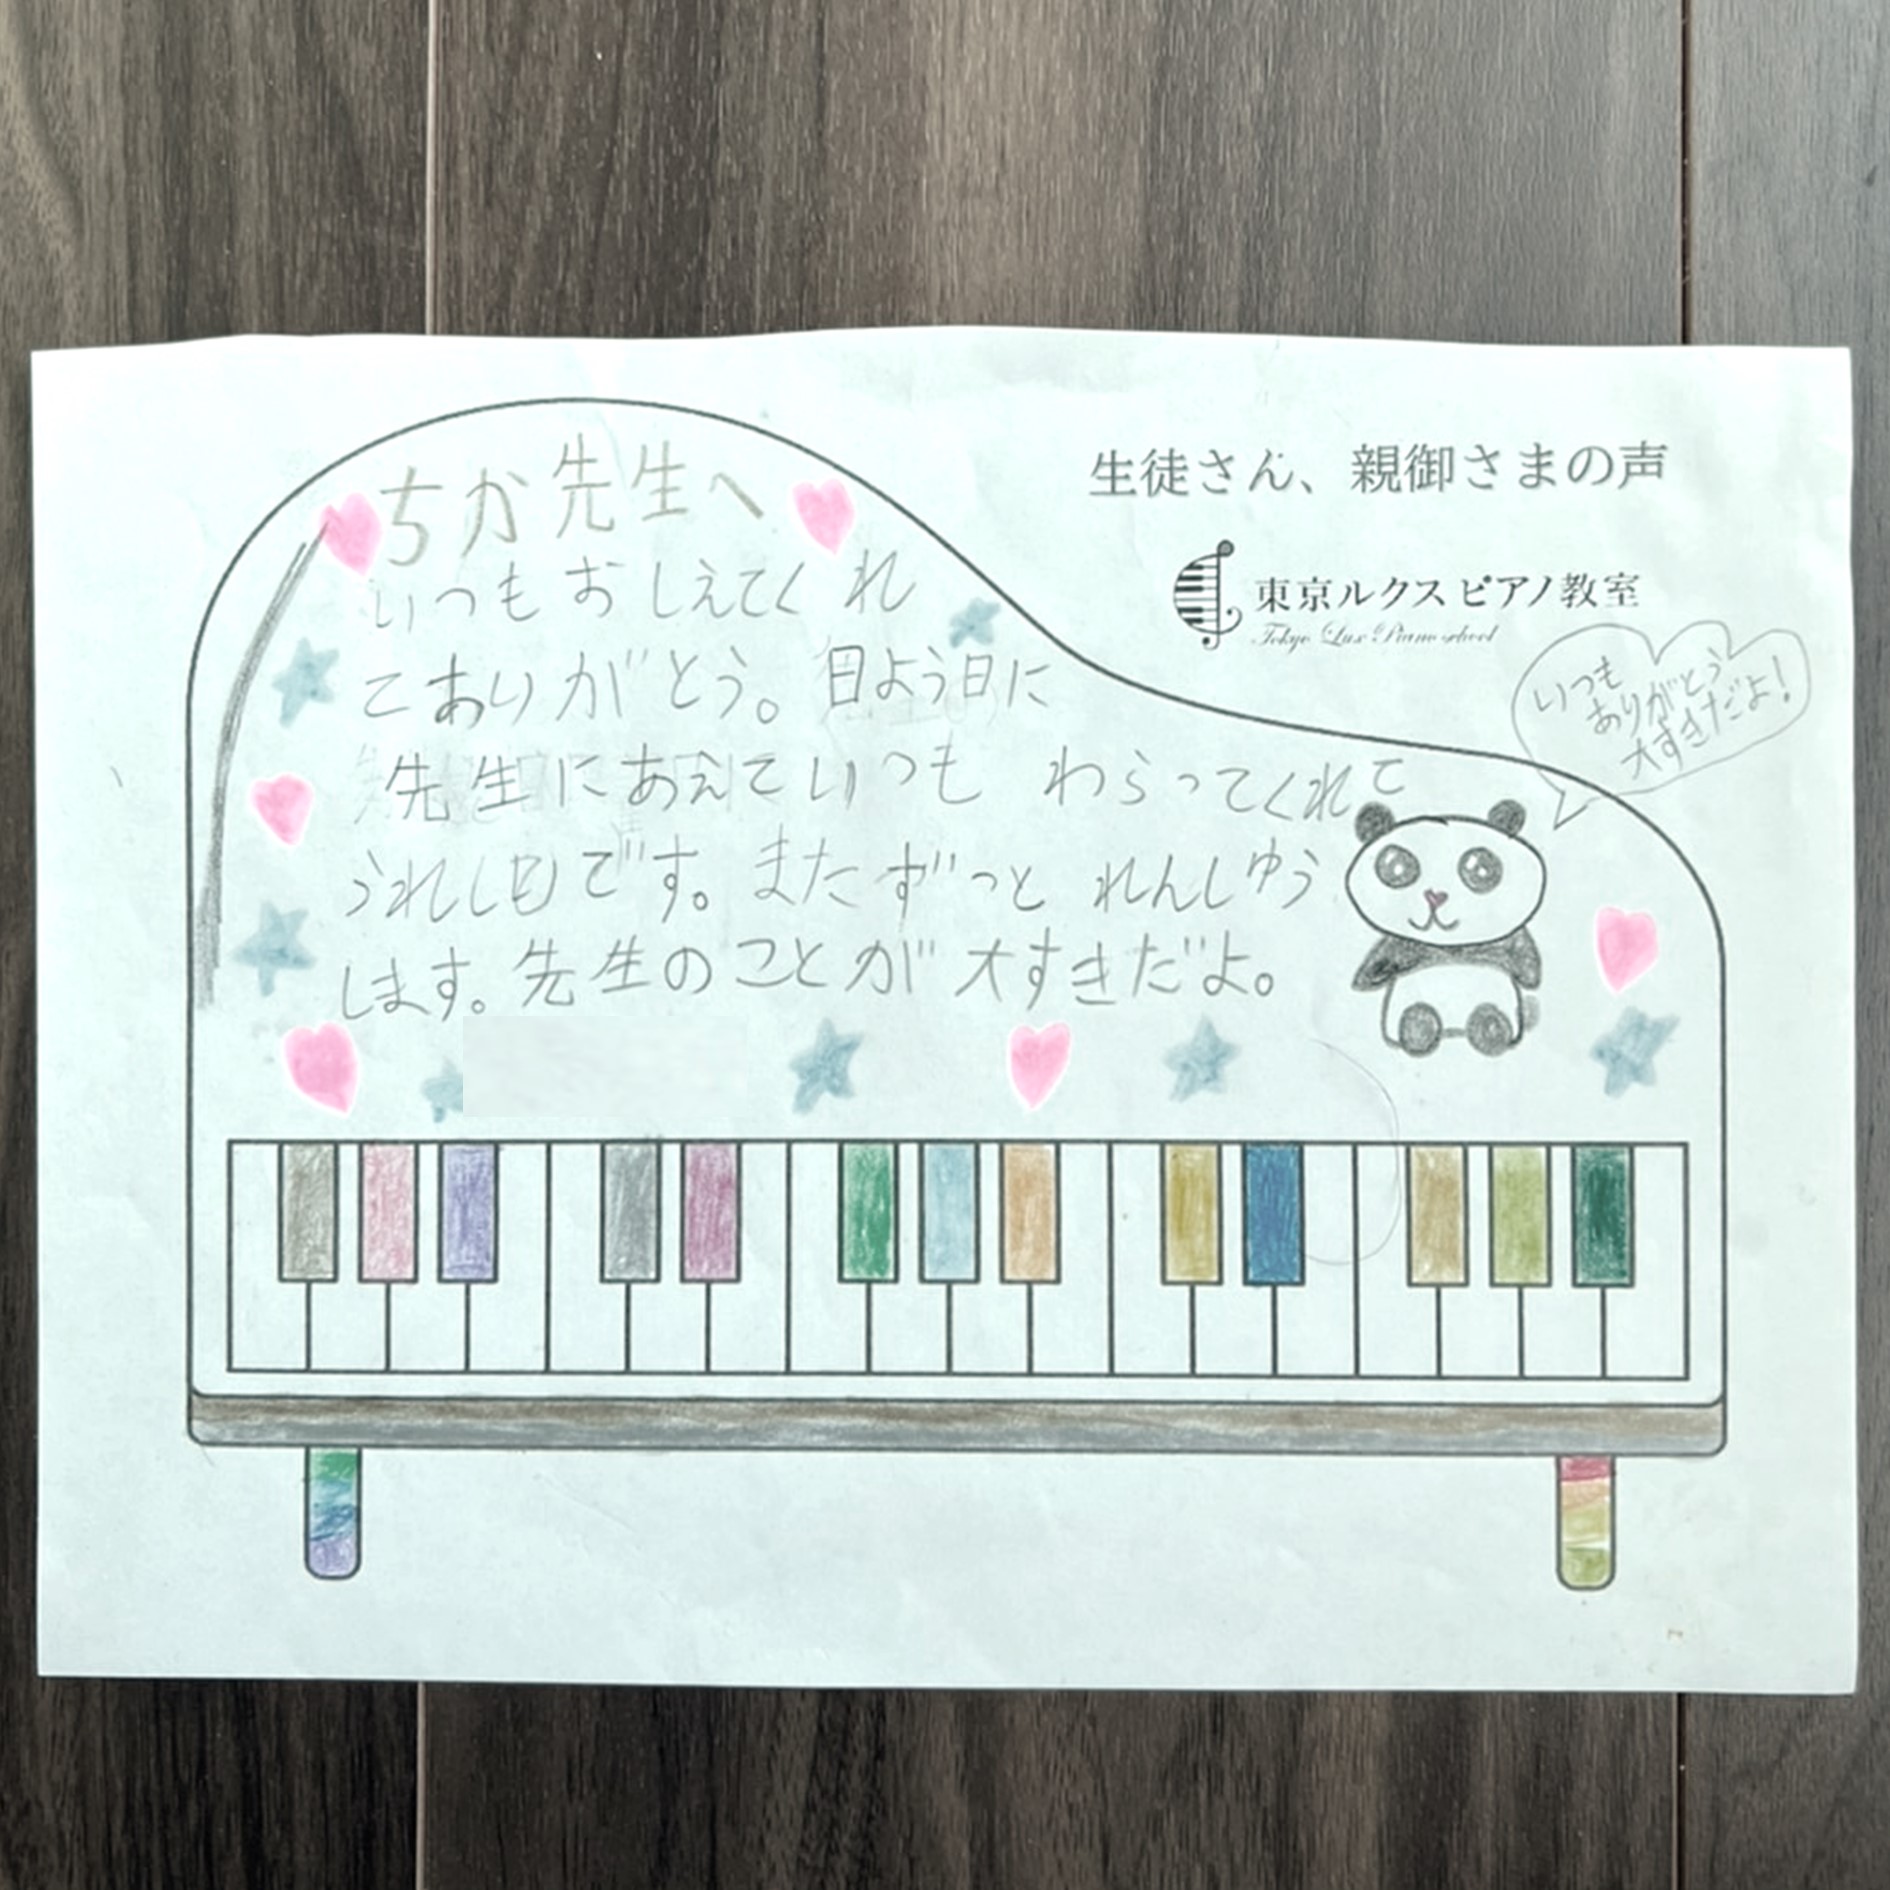 生徒さん、親御さまの声
東京ルクスピアノ教室
Tokyo Lux Piano school
ちか先生へ
いつもおしえてくれ
てありがとう。日よう日に
先生にあえていつも わらってくれて
うれし日です。またずっと れんしゅう
します。先生のことが大すきだよ。
いつも
ありがとう
大すきだよ!